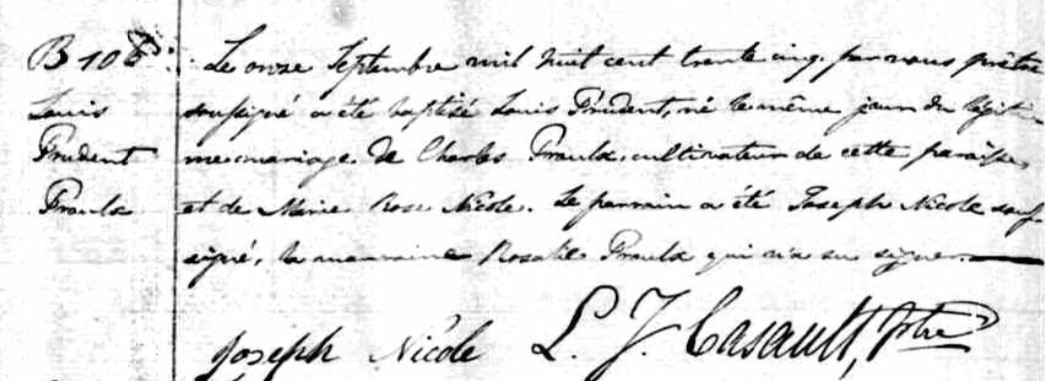 B 108: Le onze Septembre mil huit cent trente cinq, par nous prêtre
Louis soussigné a été baptisé Louis Prudent, né le même jour du légiti-
Prudent me mariage de Charles Proulx, cultivateur de cette paroisse,
Proulx et de Marie Rose Nicole. Le parrain a été Joseph Nicole sous-
signé, la marraine Rosalie Proulx qui n'a su signer.
Joseph Nicole L. J. Casault, Ptre